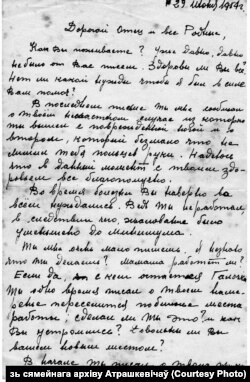 29 Июня 1957 г.
Дорогой Отец и все Родные,
Как Вы поживаете? Уже давно, давно
не было от Вас писем. Здоровы ли Вы все
Нет ли какой нужды чтобы я был в силе
Вам помочь?
В последнем письме ты мне сообщил
о твоем несчастном случае из которого
ты вышел с поврежденной ногой и о
втором, который безмало что не
лишил тебя пальцев руки. Надеюсь
что в данный момент с твоим здо-
ровьем все благополучно.
Во время болезни Вы наверно во
всем нуждались. Ведь ты не работал
и следствии чего, жалование было
уменьшено до минимума.
Ты мне очень мало пишешь, я не знаю
что ты делаешь? Мамаша работает ли?
Если да, с кем остается Галоча
Ты одно время писал о твоем наме-
рении переселится поближе места
работы, сделал ли ты это? и как
Вы устроились? Довольны ли Вы
вашим новым местом?
В начале ты писал о
зь сямейнага архіву Атрашкевічаў (Courtesy Photo)